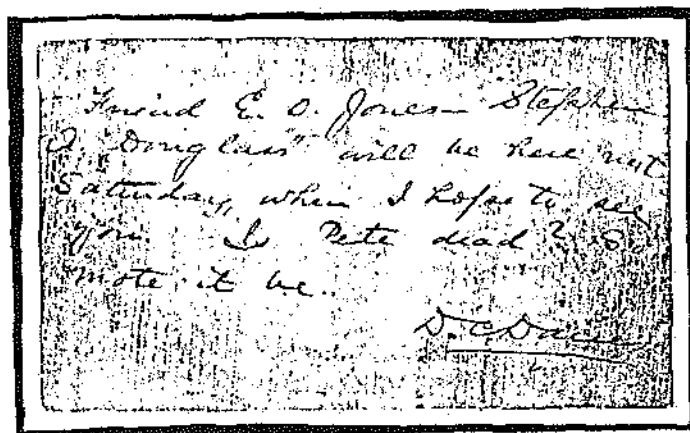 Friend E. O. Jones— "Stephen
A Douglass" will be here next
Saturday, when I hope to see
you. Is Pete dead? So
mote it be.
D. C.